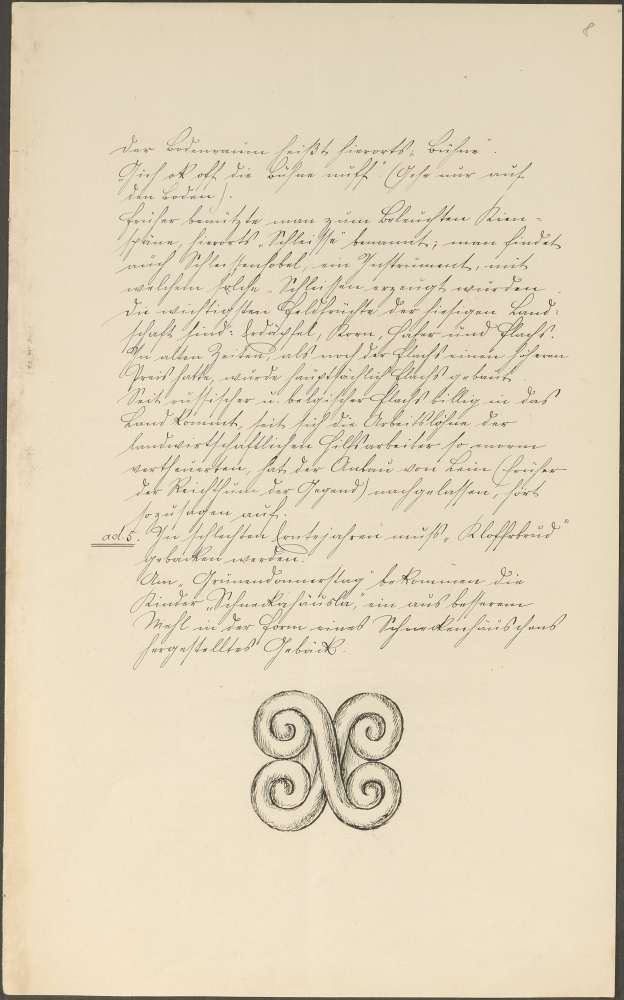 8
Der Bodenraum heißt hierorts „Bühne“.
„Gieh ok oft die Bühne nuff“ (Gehe nur auf
den Boden).
Früher benützte man zum Beleuchten Kien-
späne, hierorts „Schleisse“ benannt; man findet
auch Schleissenhobel, ein Instrument, mit
welchem solche Schleissen erzeugt wurden.
Die wichtigsten Feldfrüchte der hiesigen Land-
schaft sind: Erdäpfel, Korn, Hafer und Flachs.
In alten Zeiten, als noch der Flachs einen höheren
Preis hatte, wurde hauptsächlich Flachs gebaut.
Seit russischer u. belgischer Flachs billig in das
Land kommt, seit sich die Arbeitslöhne der
landwirtschaftlichen Hilfsarbeiter so enorm
vertheuerten, hat der Anbau von Lein (früher
der Reichthum der Gegend) nachgelassen, hört
sozusagen auf.
ad. 5. In schlechten Erntejahren muß „Kloffebrud“
gebacken werden.
Am „Grünendonnerstag“ bekommen die
Kinder „Schneckahäusla“, ein aus besserem
Mehl in der Form eines Schneckenhäuschens
hergestelltes Gebäck.